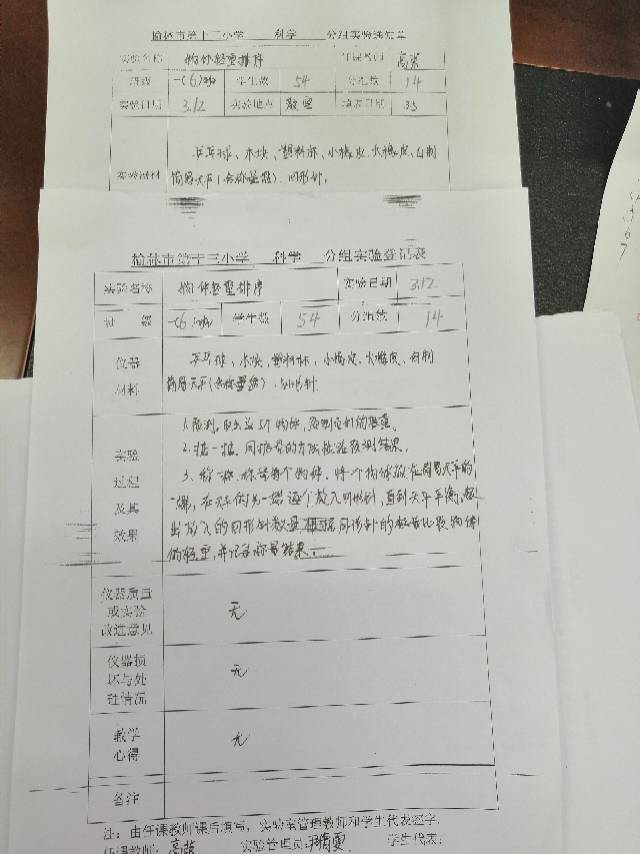 榆林市第十三小学 科学 分组实验通知单
实验名称 物体轻重排序 任课教师 高荣
班级 一(6) 学生数 54 分组数 14
实验日期 3.12 实验地点 教室 填表日期 3.5
实验器材 乒乓球、木块、塑料杯、小橡皮、大橡皮、自制
简易天平(含称量盘)、回形针。
榆林市第十三小学 科学 分组实验登记表
实验名称 物体轻重排序 实验日期 3.12
班 级 一(6) 学生数 54 分组数 14
仪器材料 乒乓球、木块、塑料杯、小橡皮、大橡皮、自制
简易天平(含称量盘)、回形针
实验过程及其效果
1.预测。 5个物体,预测它们的轻重。
2.掂一掂。用掂量的方法检验预测结果。
3.称一称。称 每个物体。将一个物体放在简易天平的
一端,在天平的另一端逐个放入回形针,直到天平平衡,数
出放入的回形针数量 回形针的数量比较物体
的轻重,并记录称量结果。
仪器质量或实验改进意见 无
仪器损坏与处理情况 无
教学心得 无
备注
注:由任课教师课后填写,实验室管理教师和学生代表签字.
任课教师: 高荣 实验管理员: 学生代表:
6
7